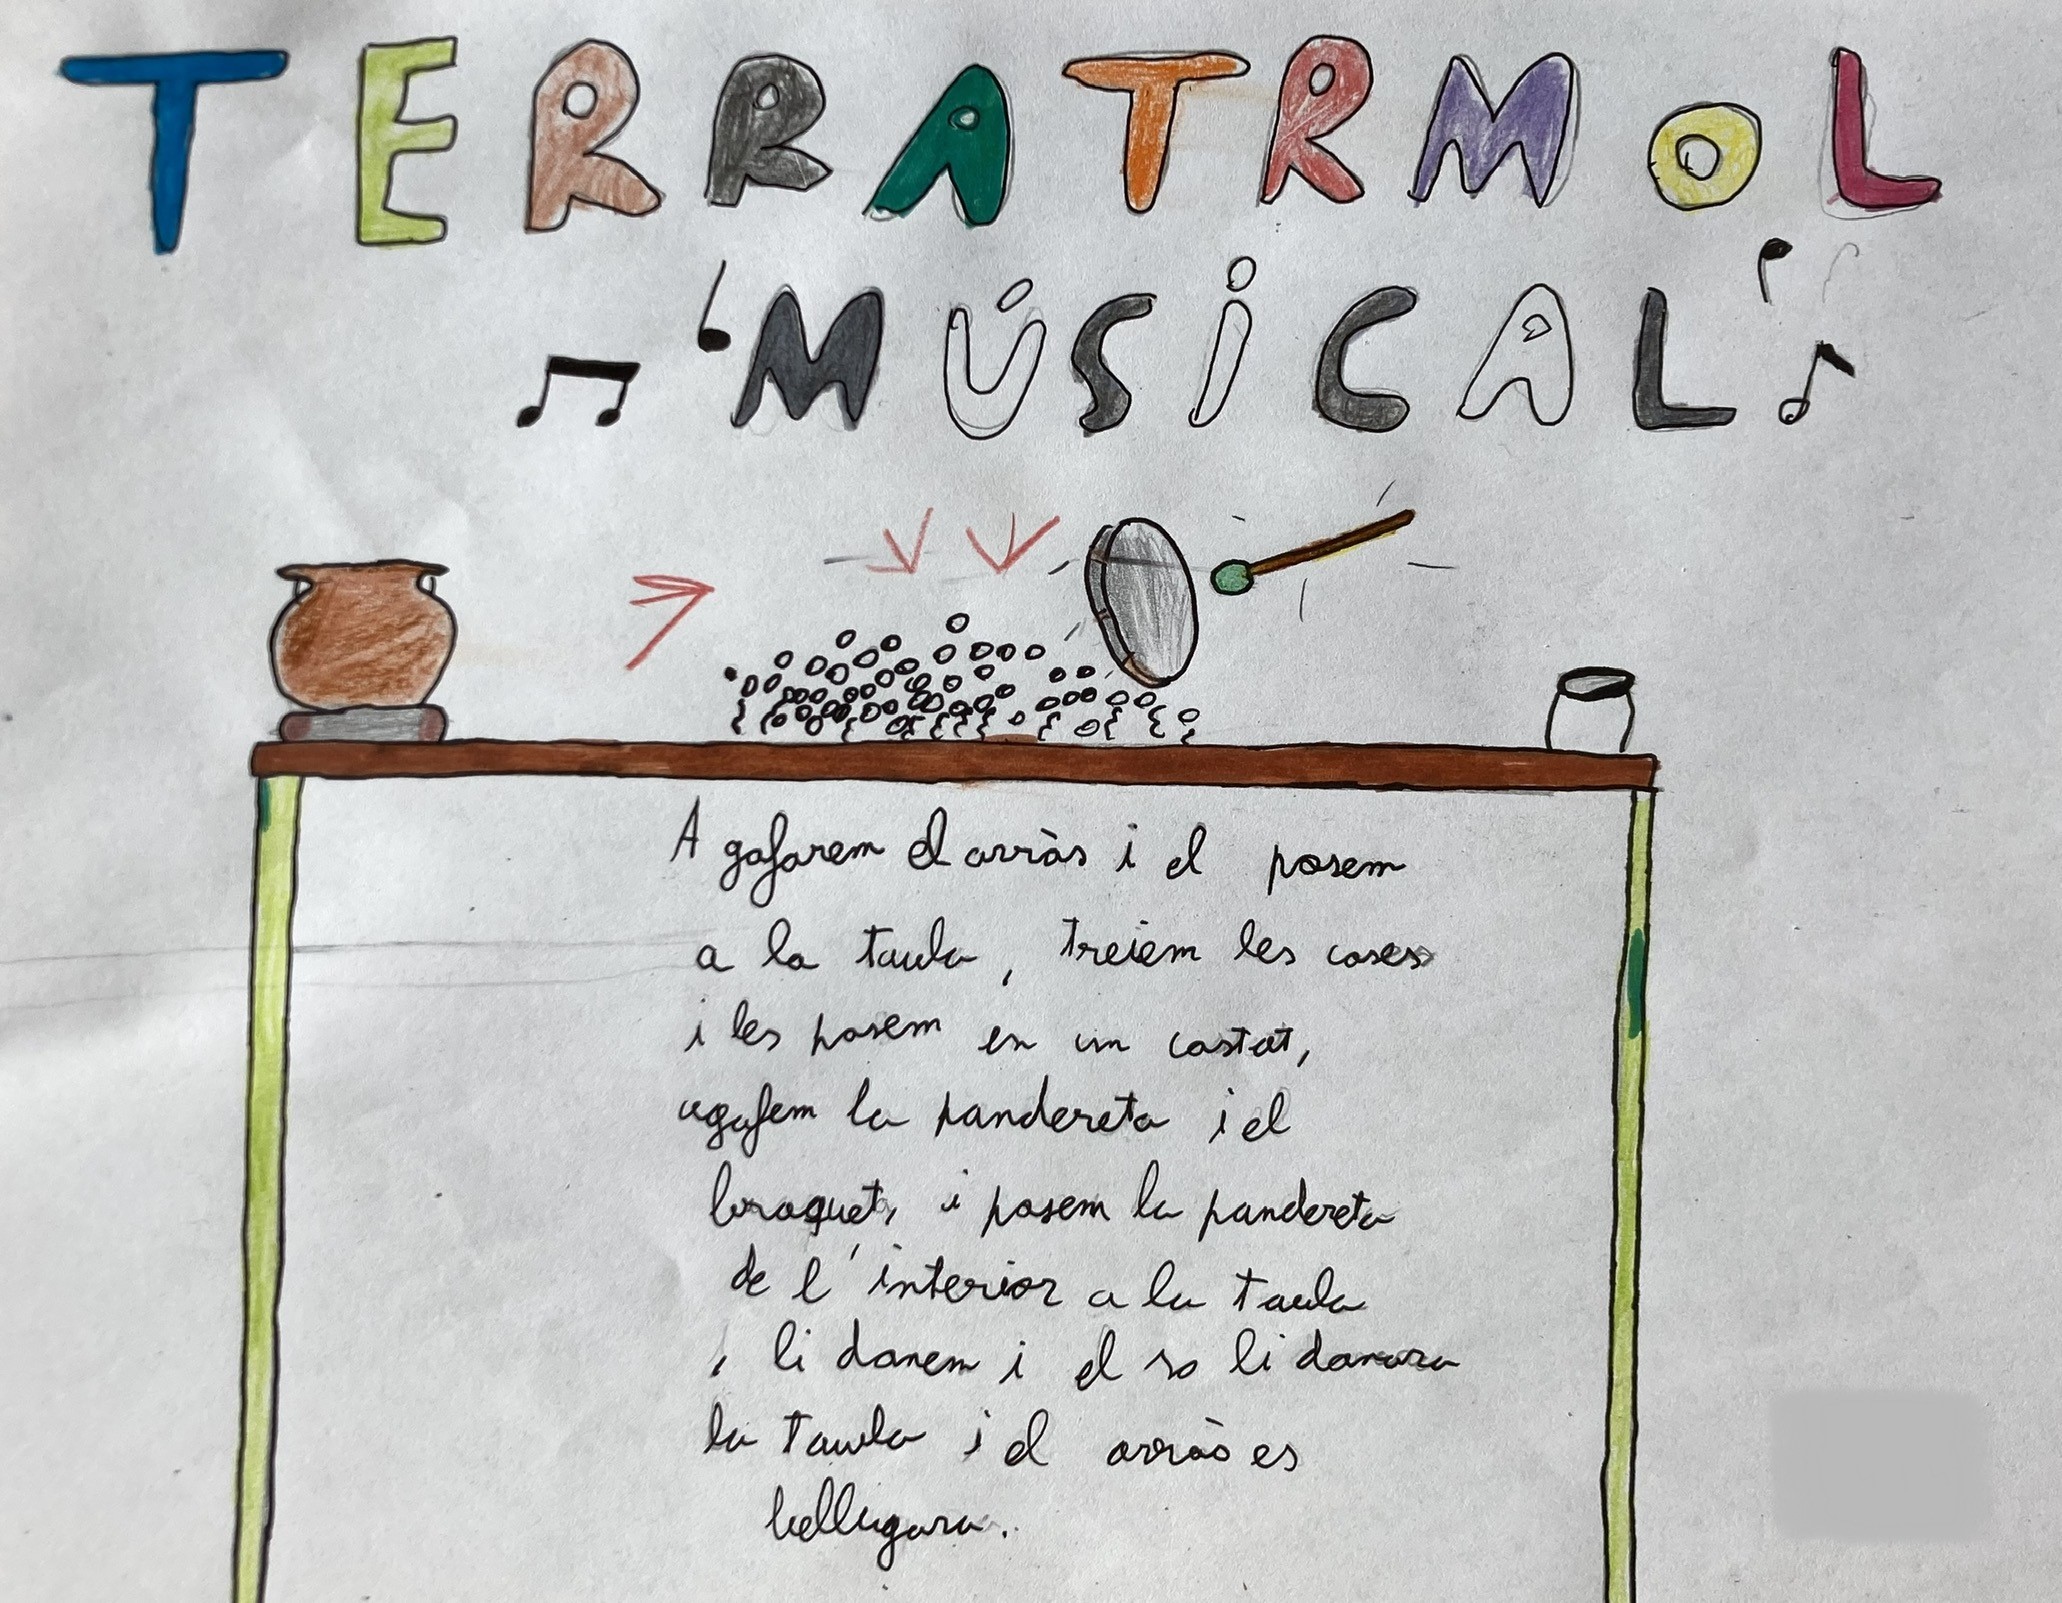 TERRATRMOL
MÚSICAL
A gafarem el arròs i el posem
a la taula, treiem les coses
i les posem en un costat,
agafem la pandereta i el
broquet, i posem la pandereta
de l'interior a la taula
, li donem i el so li donara
la taula i el arròs es
bellugara.